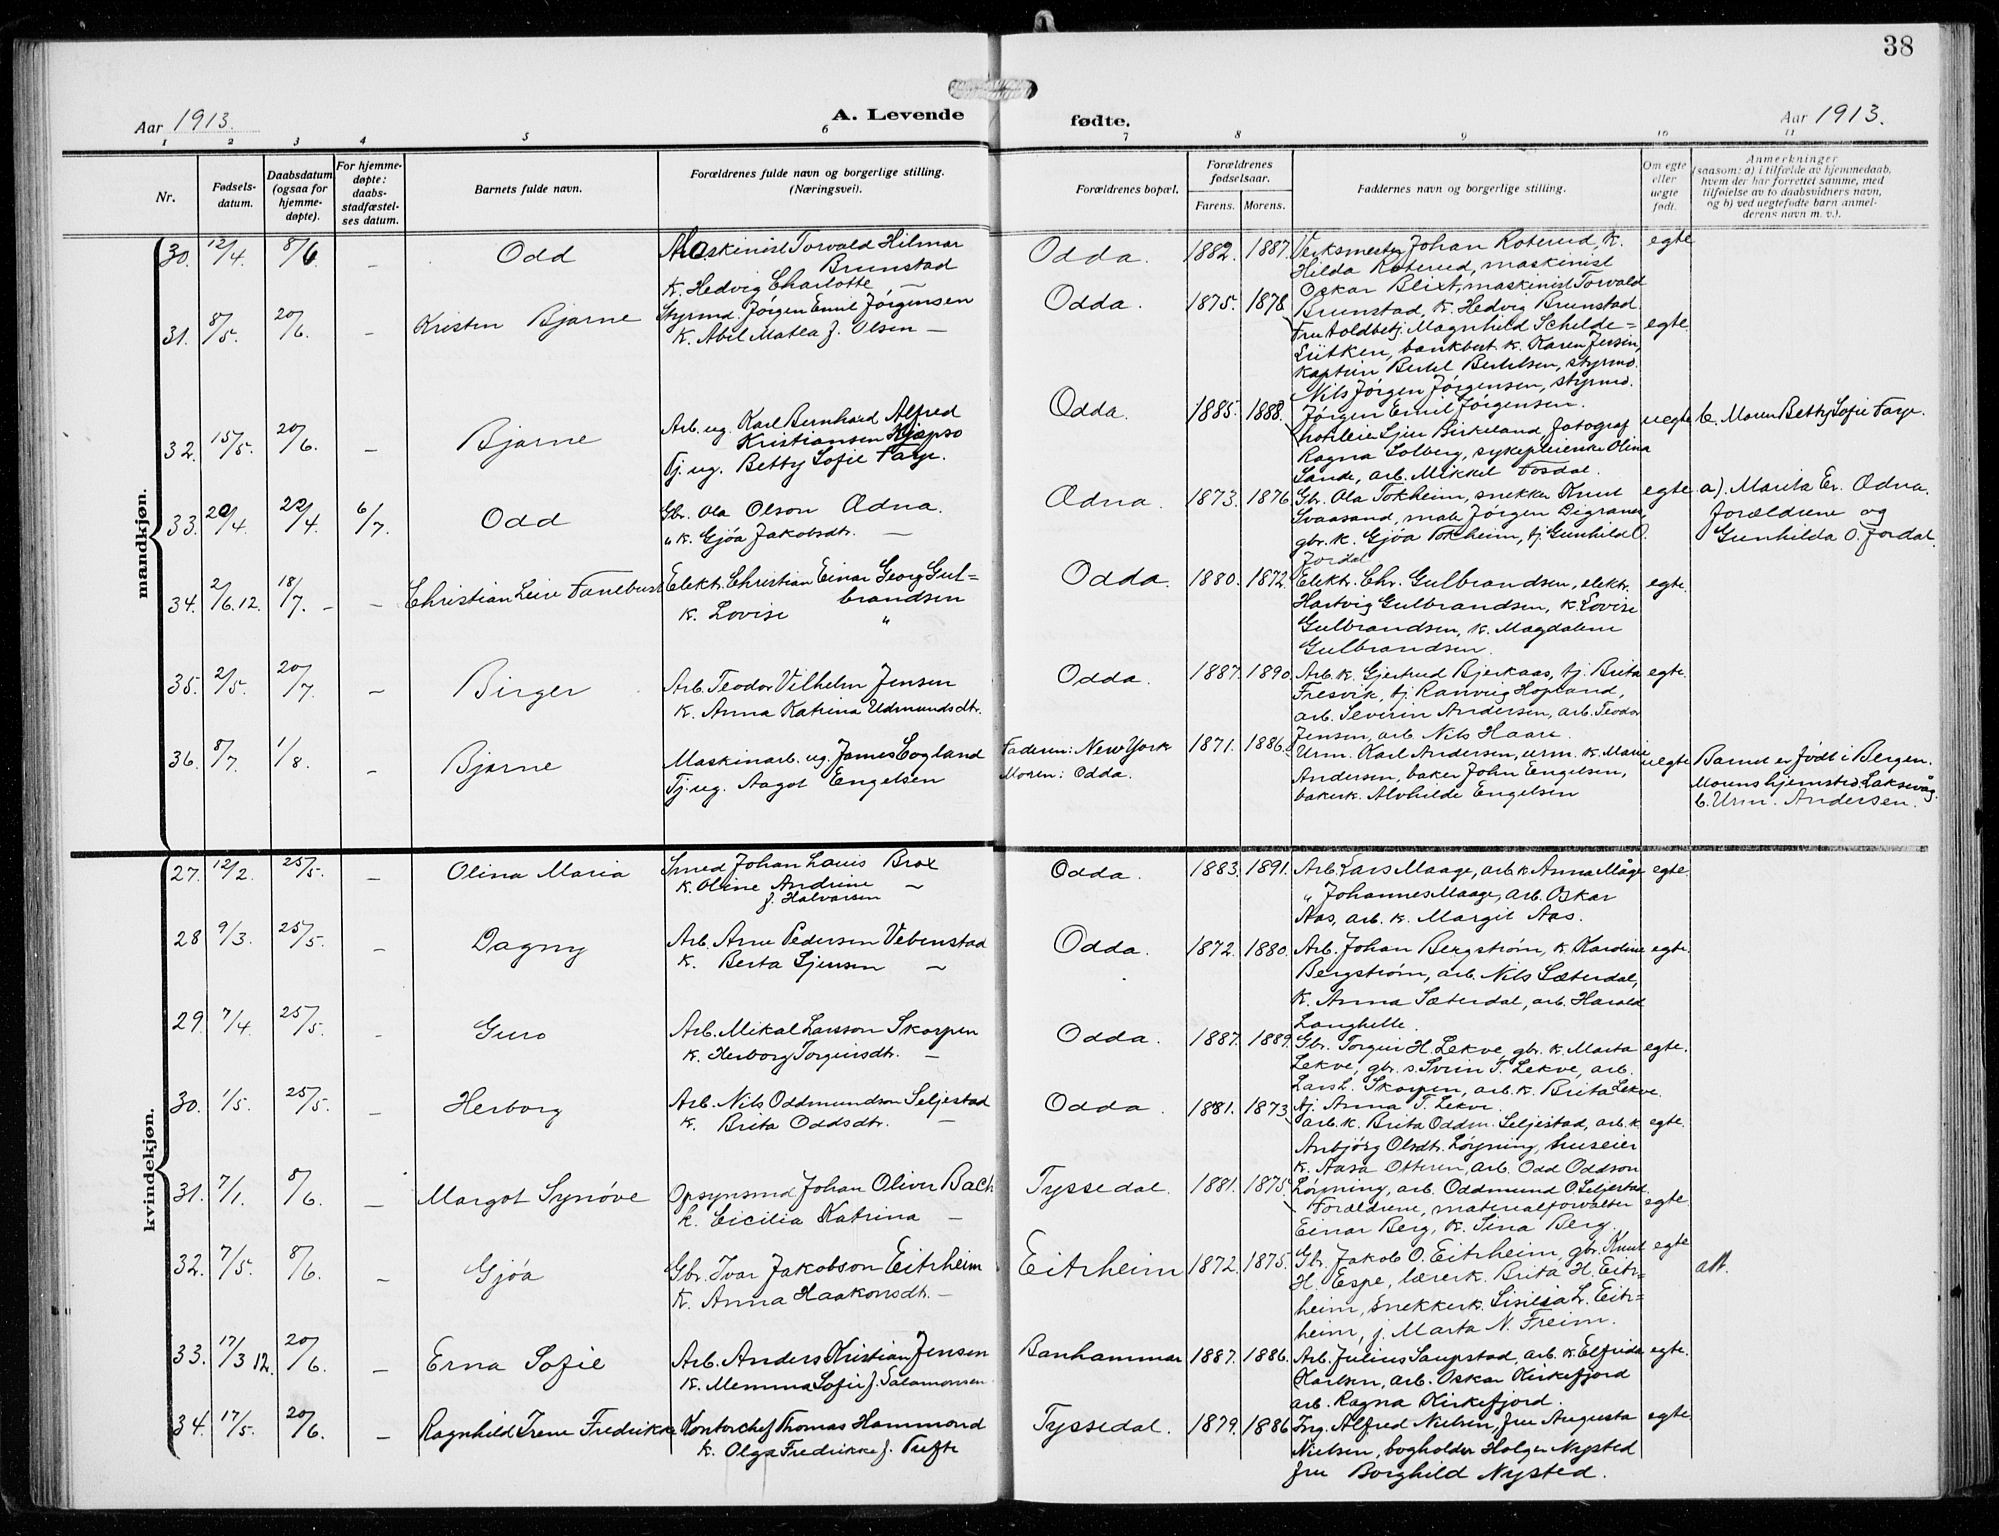 38
Aar 1913.
A. Levende
fødte.
Aar 1913.
1 2 3 4 5 6 7 8 9 10 11
Nr.
Fødsels-
datum.
Daabsdatum
(ogsaa for
hjemme-
døpte).
For hjemme-
døpte:
daabs-
stadfæstel-
ses datum.
Barnets fulde navn.
Forældrenes fulde navn og borgerlige stilling.
(Næringsvei).
Forældrenes bopæl.
Forældrenes
fødselsaar.
Farens. Morens.
Faddernes navn og borgerlige stilling.
Om egte
eller
uegte
født.
Anmerkninger
(saasom: a) i tilfælde av hjemmedaab,
hvem der har forrettet samme, med
tilføielse av to daabsvidners navn,
og b) ved uegtefødte barn anmel-
derens navn m. v.).
mandkjøn.
30. 12/4. 8/6. – Odd
Maskinist Torvald Hilmar
Brunstad
k. Hedvig Charlotte –
Odda. 1882. 1887.
Verksmester Johan Roterud, k.
Hilda Roterud, maskinist
Oskar Blixt, maskinist Torvald
Brunstad, k. Hedvig Brunstad
egte
31. 8/5. 20/6. – Kristen Bjarne
Styrmd. Jørgen Emil Jørgensen
k. Abel Matea f. Olsen –
Odda. 1875. 1878
Fru toldbetj. Magnhild Schilde=
Lütken, bankbest. k. Karen Jensen,
kaptein Bertel Bertelsen, styrmd.
Nils Jørgen Jørgensen, styrmd.
Jørgen Emil Jørgensen.
egte.
32. 15/5. 20/6. – Bjarne
Arb. ug. Karl Bernhard Alfred
Kristiansen Kjæpso
Tj. ug. Betty Sofie Faye.
Odda. 1885. 1888.
Sjur Birkeland, fotograf
Ragna Solberg, sykepleierske Olina
Sande, arb. Mikkel Fosdal.
uegte b. Moren Betty Sofie Faye.
33. 20/4. 22/4. 6/7. Odd
Gbr. Ola Olson Ædna.
" k. Gjøa Jakobsdt. –
Ædna. 1873. 1876.
Gbr. Ola Tokheim, snekker Knut
Svaasand, maler Jørgen Digranes,
gbr. k. Gjøa Tokheim, tj. Gunhild O.
Jordal
egte a). Marita Er. Ædna.
forældrene og
Gunhilda O. Jordal.
34. 2/6.12. 18/7. – – Christian Leire Fanebust
Elektr. Christian Einar Georg Gul=
brandsen
k. Lovise "
Odda. 1880. 1872.
Elektr. Chr. Gulbrandsen, elektr.
Hartvig Gulbrandsen, k. Lovise
Gulbrandsen, k. Magdalene
Gulbrandsen.
egte.
35. 2/5. 20/7. – Birger
Arb. Teodor Vilhelm Jensen
k. Anna Katrina Udmundsdtr.
Odda. 1887. 1890.
Arb. k. Gjertrud Bjerkaas, tj. Brita
Fresvik, tj. Ranveig Hopland,
arb. Severin Andersen, arb. Teodor
Jensen, arb. Nils Haare.
egte.
36. 8/7. 1/8. – Bjarne
Maskinarb. ug. James Eogland
Tj. ug. Aagot Engelsen
Faderen: New York
Moren: Odda.
1871. 1886.
Urm. Karl Andersen, urm. k. Marie
Andersen, baker John Engelsen,
bakerk. Alvhilde Engelsen
uegte Barnet er født i Bergen.
Morens hjemsted: Laksevåg.
b. Urm. Andersen.
kvindekjøn.
27. 12/2. 25/5. – Olina Maria
Smed Johan Louis Brox
k. Oline Andrine –
f. Halvarsen
Odda. 1883. 1891.
Arb. Lars Maage, arb. k. Anna Måge
" Johannes Maage, arb. Oskar
Aas, arb. k. Margit Aas.
egte.
28 9/3. 25/5. – Dagny
Arb. Arne Pedersen Vebenstad
k. Berta Sjursen –
Odda. 1872. 1880.
Arb. Johan Bergstrøm, k. Karoline
Bergstrøm, arb. Nils Sæterdal,
k. Anna Sæterdal, arb. Harald
Langhelle.
egte.
29. 7/4. 25/5. – Guro
Arb. Mikal Larsson Skorpen
k. Herborg Torgeirsdtr. –
Odda. 1887. 1889.
Gbr. Torgeir H. Lekve, gbr. k. Marta
Lekve, gbr. s. Svein T. Lekve, arb.
Lars L. Skorpen, arb. k. Brita Lekve.
tj. Anna T. Lekve.
egte.
30. 1/5. 25/5. – Herborg
Arb. Nils Oddmundson Seljestad
k. Brita Oddsdtr. –
Odda. 1881. 1873
arb. k. Brita Oddm. Seljestad, arb. k.
Anbjørg Olsdt. Løyning, huseier
k. Aasa Otteren, arb. Odd Oddson
Løyning, arb. Oddmund O. Seljestad.
egte.
31. 7/1. 8/6. – Margot Synøve
Opsynsmd Johan Oliver Bach
k. Cicilia Katrina –
Tyssedal. 1881. 1875.
Forældrene, materialforvalter
Einar Berg, k. Sina Berg.
egte.
32. 7/5. 8/6. – Gjøa
Gbr. Ivar Jakobson Eitrheim
k. Anna Haakonsdt. –
Eitrheim 1872. 1875.
Gbr. Jakob O. Eitrheim, gbr. Knut
H. Espe, lærerk. Brita H. Eitr=
heim, snekkerk. Sisilia L. Eitr=
heim, j. Marta N. Freim.
egte att.
33. 17/3 12. 20/6. – Erna Sofie
Arb. Anders Kristian Jensen
k. Memma Sofie f. Salamonsen
Banhammar 1887. 1886.
Arb. Julius Saupstad, arb. k. Elfrida
Karlsen, arb. Oskar Kirkefjord
arb. Ragna Kirkefjord.
egte.
34. 17/5. 20/6. – Ragnhild Irene Fredrikke
Kontorchef Thomas Hammond
k. Olga Fredrikke f. Tufte
Tyssedal. 1879. 1886
Ing. Alfred Nielsen, fru Augusta
Nielsen, bogholder Holger Nysted
fru Borghild Nysted.
egte